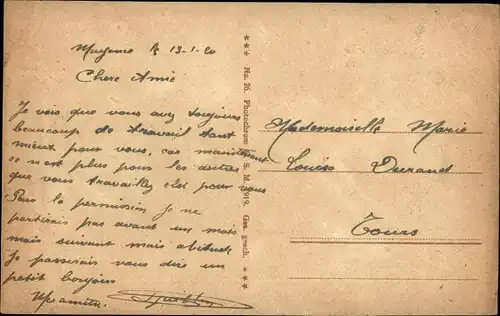 Mayence le 13-1-20
Chere Amie
Je vois que vous avez toujours
beaucoup de travail tant
mieux pour vous, car maintenant
ce n'est plus pour les autres
que vous travaillez c'est pour vous
Pour la permission je ne
partirais pas avant un mois
mais suivant mais
je passerais vous dire un
petit bonjour
No. 26. Photochrom S. M. 1919. Ges. gesch.
Mademoiselle Marie
Louise Durand
Tours